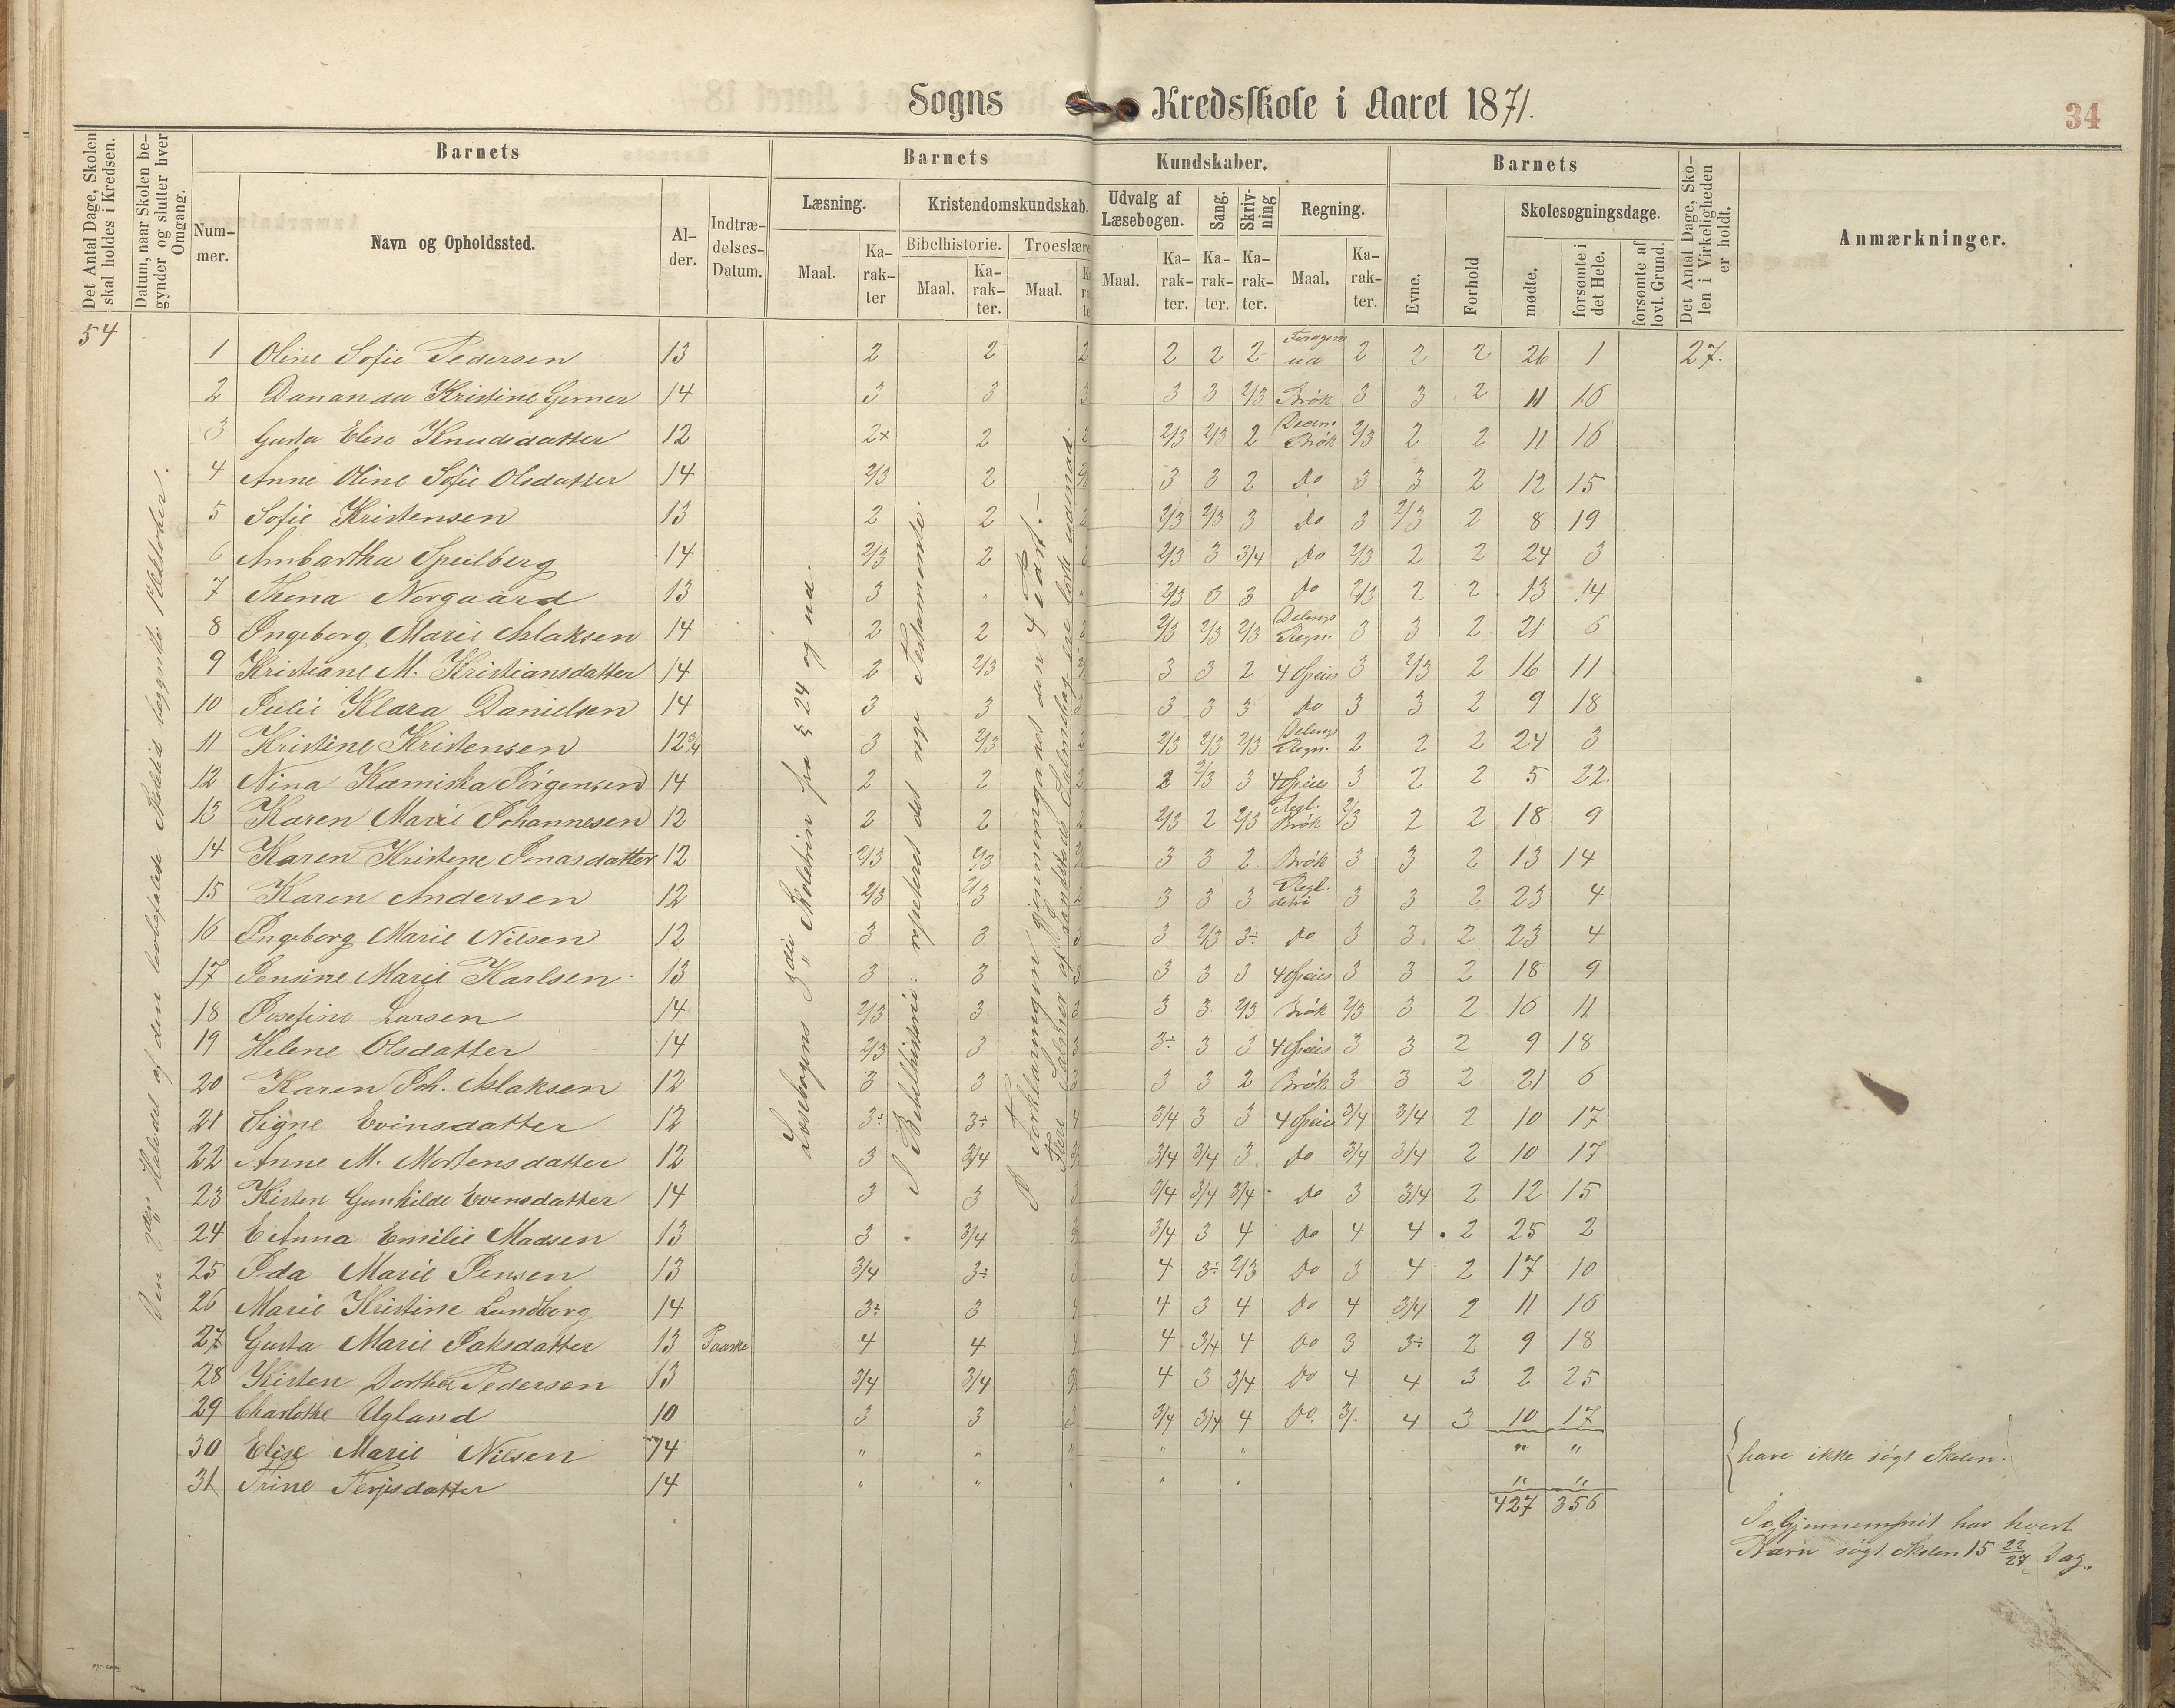 Sogns Kredsskole i Aaret 1871.
34
Det Antal Dage, Skolen skal holdes i Kredsen.
Datum, naar Skolen begynder og slutter hver Omgang.
Barnets
Nummer.
Navn og Opholdssted.
Alder.
Indtrædelses-Datum.
Barnets Kundskaber.
Læsning.
Maal.
Karakter
Kristendomskundskab.
Bibelhistorie.
Maal.
Karakter.
Troeslære
Maal.
Udvalg af Læsebogen.
Maal.
Karakter.
Sang.
Karakter.
Skrivning
Karakter.
Regning.
Maal.
Karakter.
Barnets
Evne.
Forhold
Skolesøgningsdage.
mødte.
forsømte i det Hele.
forsømte af lovl. Grund.
Det Antal Dage, Skolen i Virkeligheden er holdt.
Anmærkninger.
54
Den 2den Halvdel af den lovbefalede Skoletid begynte 1 Oktober.
Læsebogens 3die Skoletrin fra § 24 og ud.
I Bibelhistorie: repeteret det nye Testamente.
I Forklaringen gjennemgaaet den 4 Part.
1 Oline Sofie Pedersen 13 2 2 2 2 2 2 ud 2 2 2 26 1 27.
2 Dananda Kristine Gerner 14 3 3 3 3 3 2/3 Brök 3 3 2 11 16
3 Gusta Elise Knudsdatter 12 2+ 2 2 2/3 2/3 2 Decem. Brök 2/3 2 2 11 16
4 Anne Oline Sofie Olsdatter 14 2/3 2 3 3 2 Do 3 3 2 12 15
5 Sofie Kristensen 13 2 2 2 2/3 2/3 3 Do 3 2/3 2 8 19
6 Ambartha Speilberg 14 2/3 2 2/3 3 3/4 Do 2/3 2 2 24 3
7 Thona Norgaard 13 3 " " 2/3 3 3 Do 2/3 2 2 13 14
8 Ingeborg Marie Aslaksen 14 2 2 2/3 2/3 2/3 Delings Regn. 3 3 2 21 6
9 Kristiane M. Kristiansdatter 14 2 2/3 3 3 2 4 Species 3 2/3 2 16 11
10 Julie Klara Danielsen 14 3 3 3 3 3 3 Do 3 3 2 9 18
11 Kristine Kristensen 12 3/4 3 2/3 2 2/3 2/3 2/3 Delings Regn. 2 2 2 24 3
12 Nina Kamiska Jörgensen 14 2 2 2 2 2/3 3 4 Species 3 2 2 5 22.
13 Karen Marie Johannesen 12 2 2 2/3 2 2/3 Regl. Brök 2/3 2 2 18 9
14 Karen Kristene Jonasdatter 12 2/3 2/3 3 3 2 Brök 3 3 2 13 14
15 Karen Andersen 12 2/3 2/3 3 3 3 Regl. detri 3 3 2 23 4
16 Ingeborg Marie Nilsen 12 3 3 3 3 2/3 3÷ Do 3 3 2 23 4
17 Jensine Marie Karlsen 13 3 3 3 3 3 3 4 Species 3 3 2 18 9
18 Josefine Larsen 14 2/3 3 3 3 3 2/3 Brök 2/3 3 2 10 11
19 Helene Olsdatter 14 2/3 3 3÷ 3 3 4 Species 3 3 2 9 18
20 Karen Joh. Aslaksen 12 3 3 3 3 3 2 Brök 3 3 2 21 6
21 Signe Evinsdatter 12 3÷ 3÷ 4 3/4 3 3 4 Species 3/4 3/4 2 10 17
22 Anne M. Mortensdatter 12 3 3/4 3/4 3/4 3 Do 3/4 3/4 2 10 17
23 Kisten Gunhilde Evensdatter 14 3 3 3 3/4 3/4 3/4 Do 3 3/4 2 12 15
24 E Anna Emilie Madsen 13 3 3/4 3/4 3 4 Do 4 4 2 25 2
25 Ida Marie Jensen 13 3/4 3÷ 3 4 3÷ 2/3 Do 3 4 2 17 10
26 Marie Kristine Lundberg 14 3÷ 3 4 4 3 4 Do 4 3/4 2 11 16
27 Gusta Marie Isaksdatter 13 Paaske 4 4 4 4 3/4 4 Do 3 3÷ 2 9 18
28 Kisten Dorthea Pedersen 13 3/4 3/4 4 3 3/4 Do 4 4 3 2 25
29 Charlothe Ugland 10 3 3 3 3/4 3/4 4 Do. 4 3 10 17
30 Elise Marie Nilsen 14 " " " " " " "
31 Trine Terjisdatter 14 " " " " " " "
427 356
have ikke søgt Skolen.
I Gjennemsnit har hvert
Barn søgt Skolen 15 22/27 Dag.